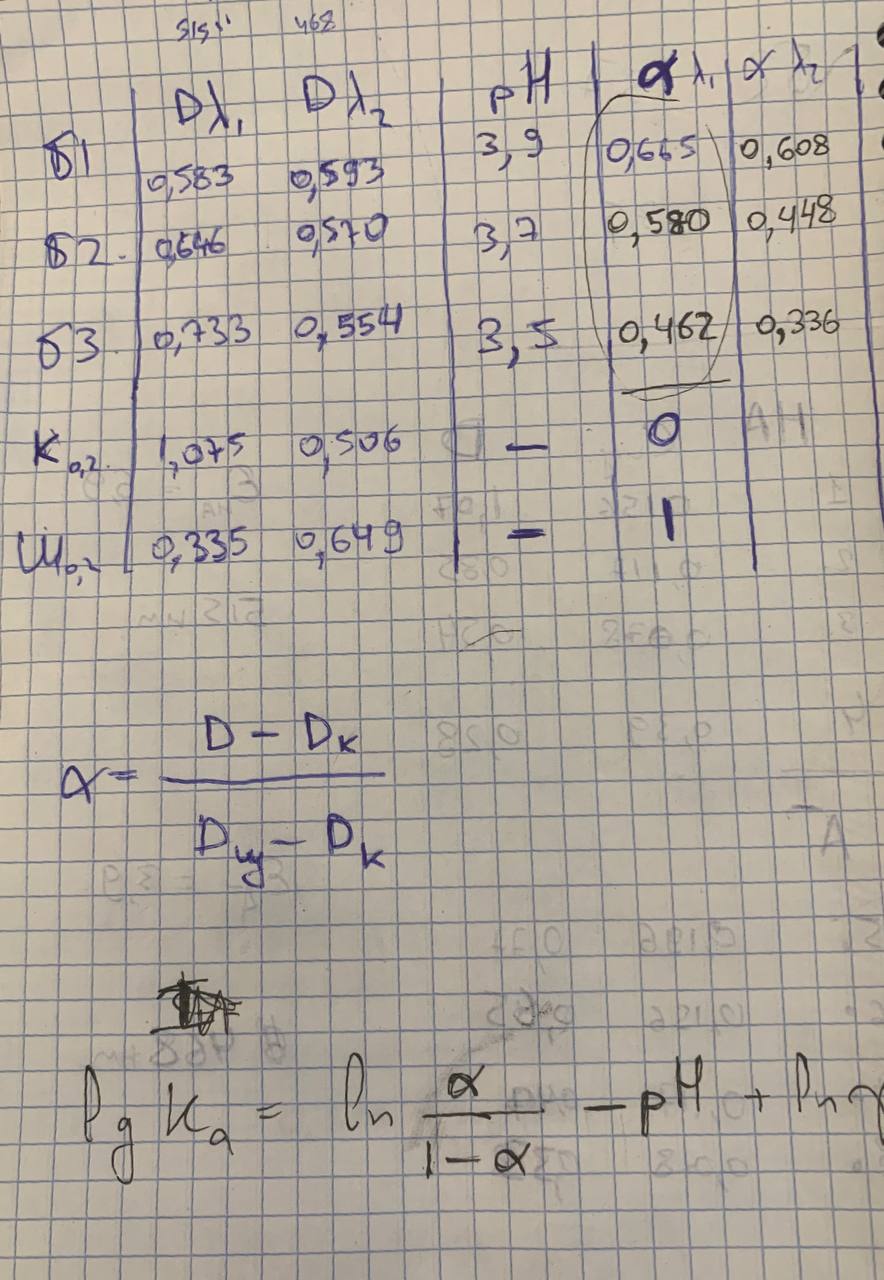 515 468
Dλ₁ Dλ₂ pH αλ₁ αλ₂
б1 0,583 0,593 3,9 0,665 0,608
б2 0,646 0,570 3,7 0,580 0,448
б3 0,733 0,554 3,5 0,462 0,336
К₀,₂ 1,075 0,506 — 0
Щ₀,₂ 0,335 0,649 — 1
α = (D − Dк) / (Dщ − Dк)
lg Ka = ln α / (1 − α) − pH + ln